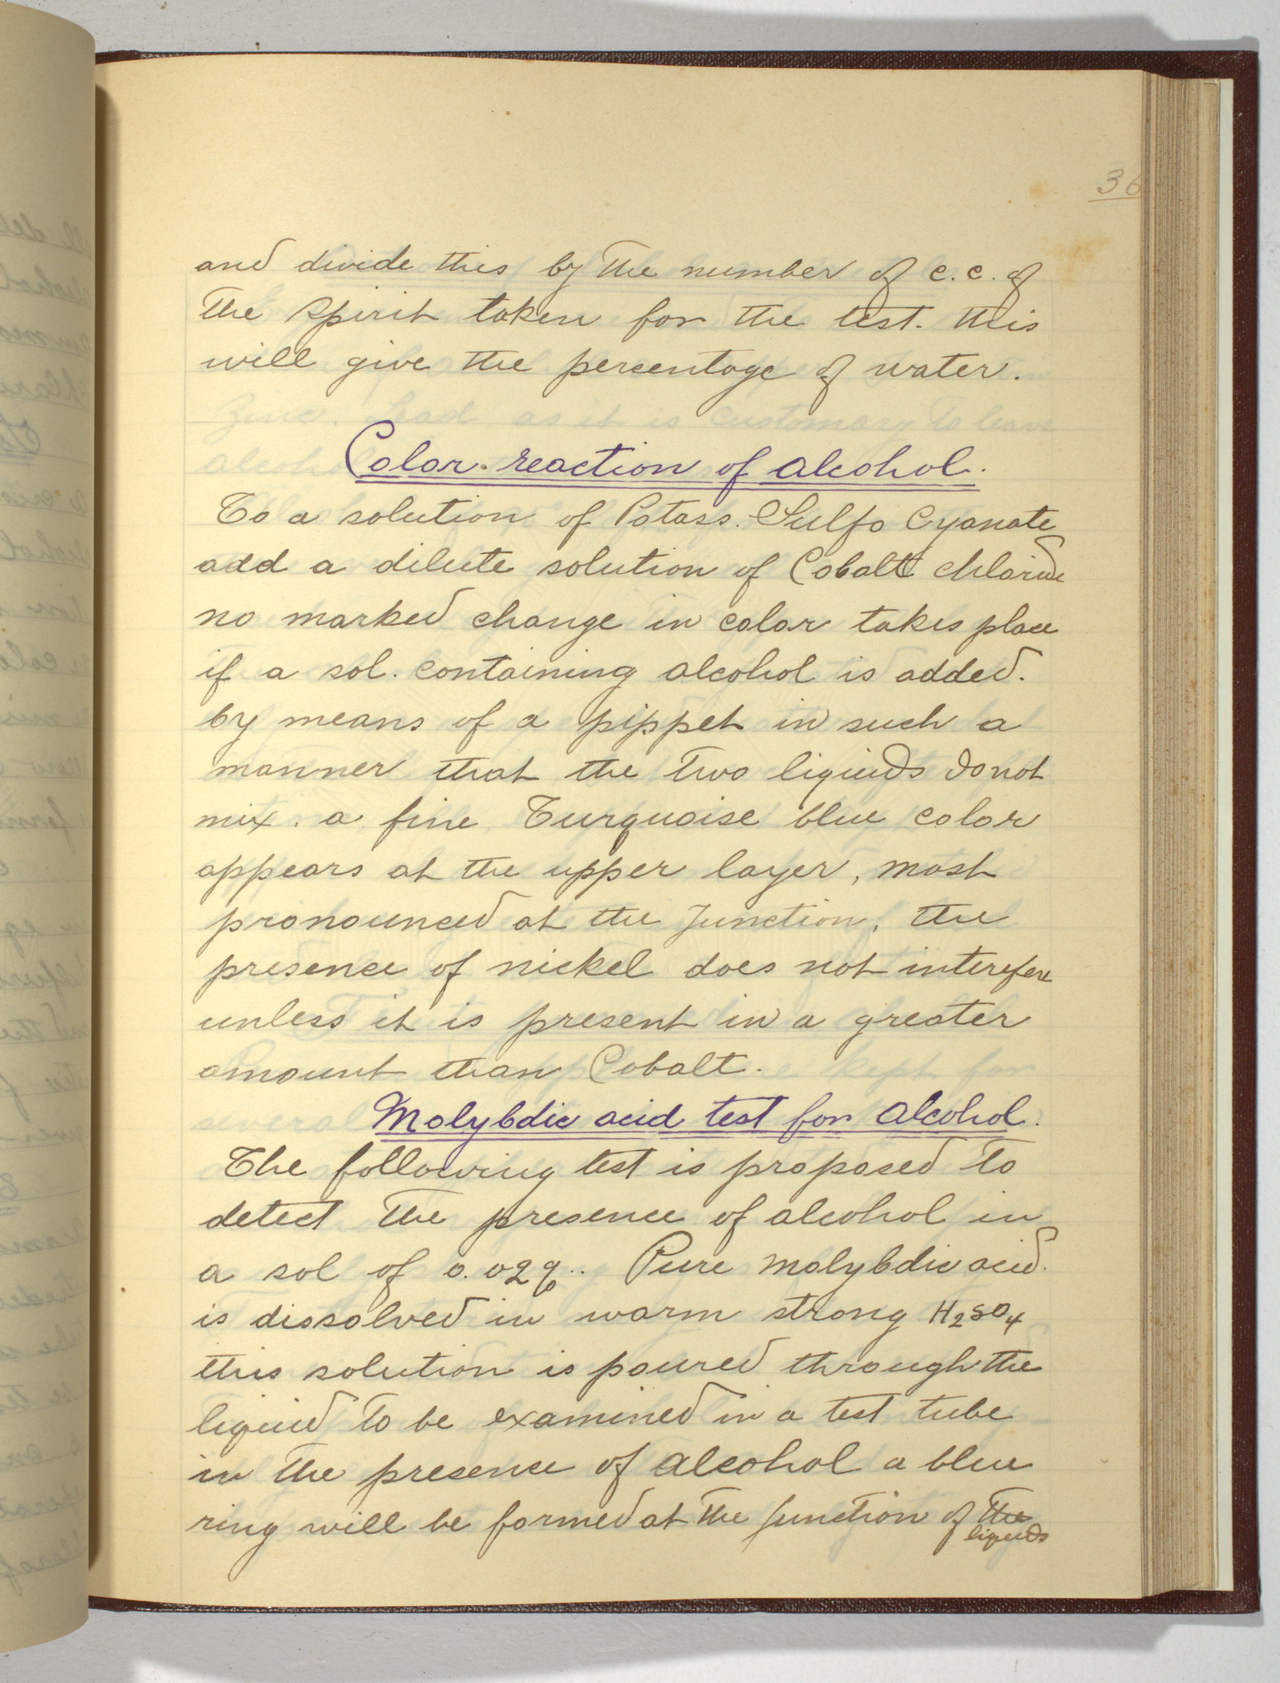 36
and divide this by the number of c.c. of
the spirit taken for the test. this
will give the percentage of water.
Color-reaction of alcohol.
To a solution of Potass. Sulfo Cyanate
add a dilute solution of Cobalt chloride
no marked change in color takes place
if a sol. containing alcohol is added.
by means of a pippet in such a
manner that the two liquids do not
mix. a fine Turquoise blue color
appears at the upper layer, most
pronounced at the junction, the
presence of nickel does not interefere
unless it is present in a greater
amount than Cobalt.
Molybdic acid test for alcohol.
The following test is proposed to
detect the presence of alcohol in
a sol of 0.02%. Pure molybdic acid.
is dissolved in warm strong H2SO4
this solution is poured through the
liquid to be examined in a test tube
in the presence of alcohol a blue
ring will be formed at the junction of the
liquids